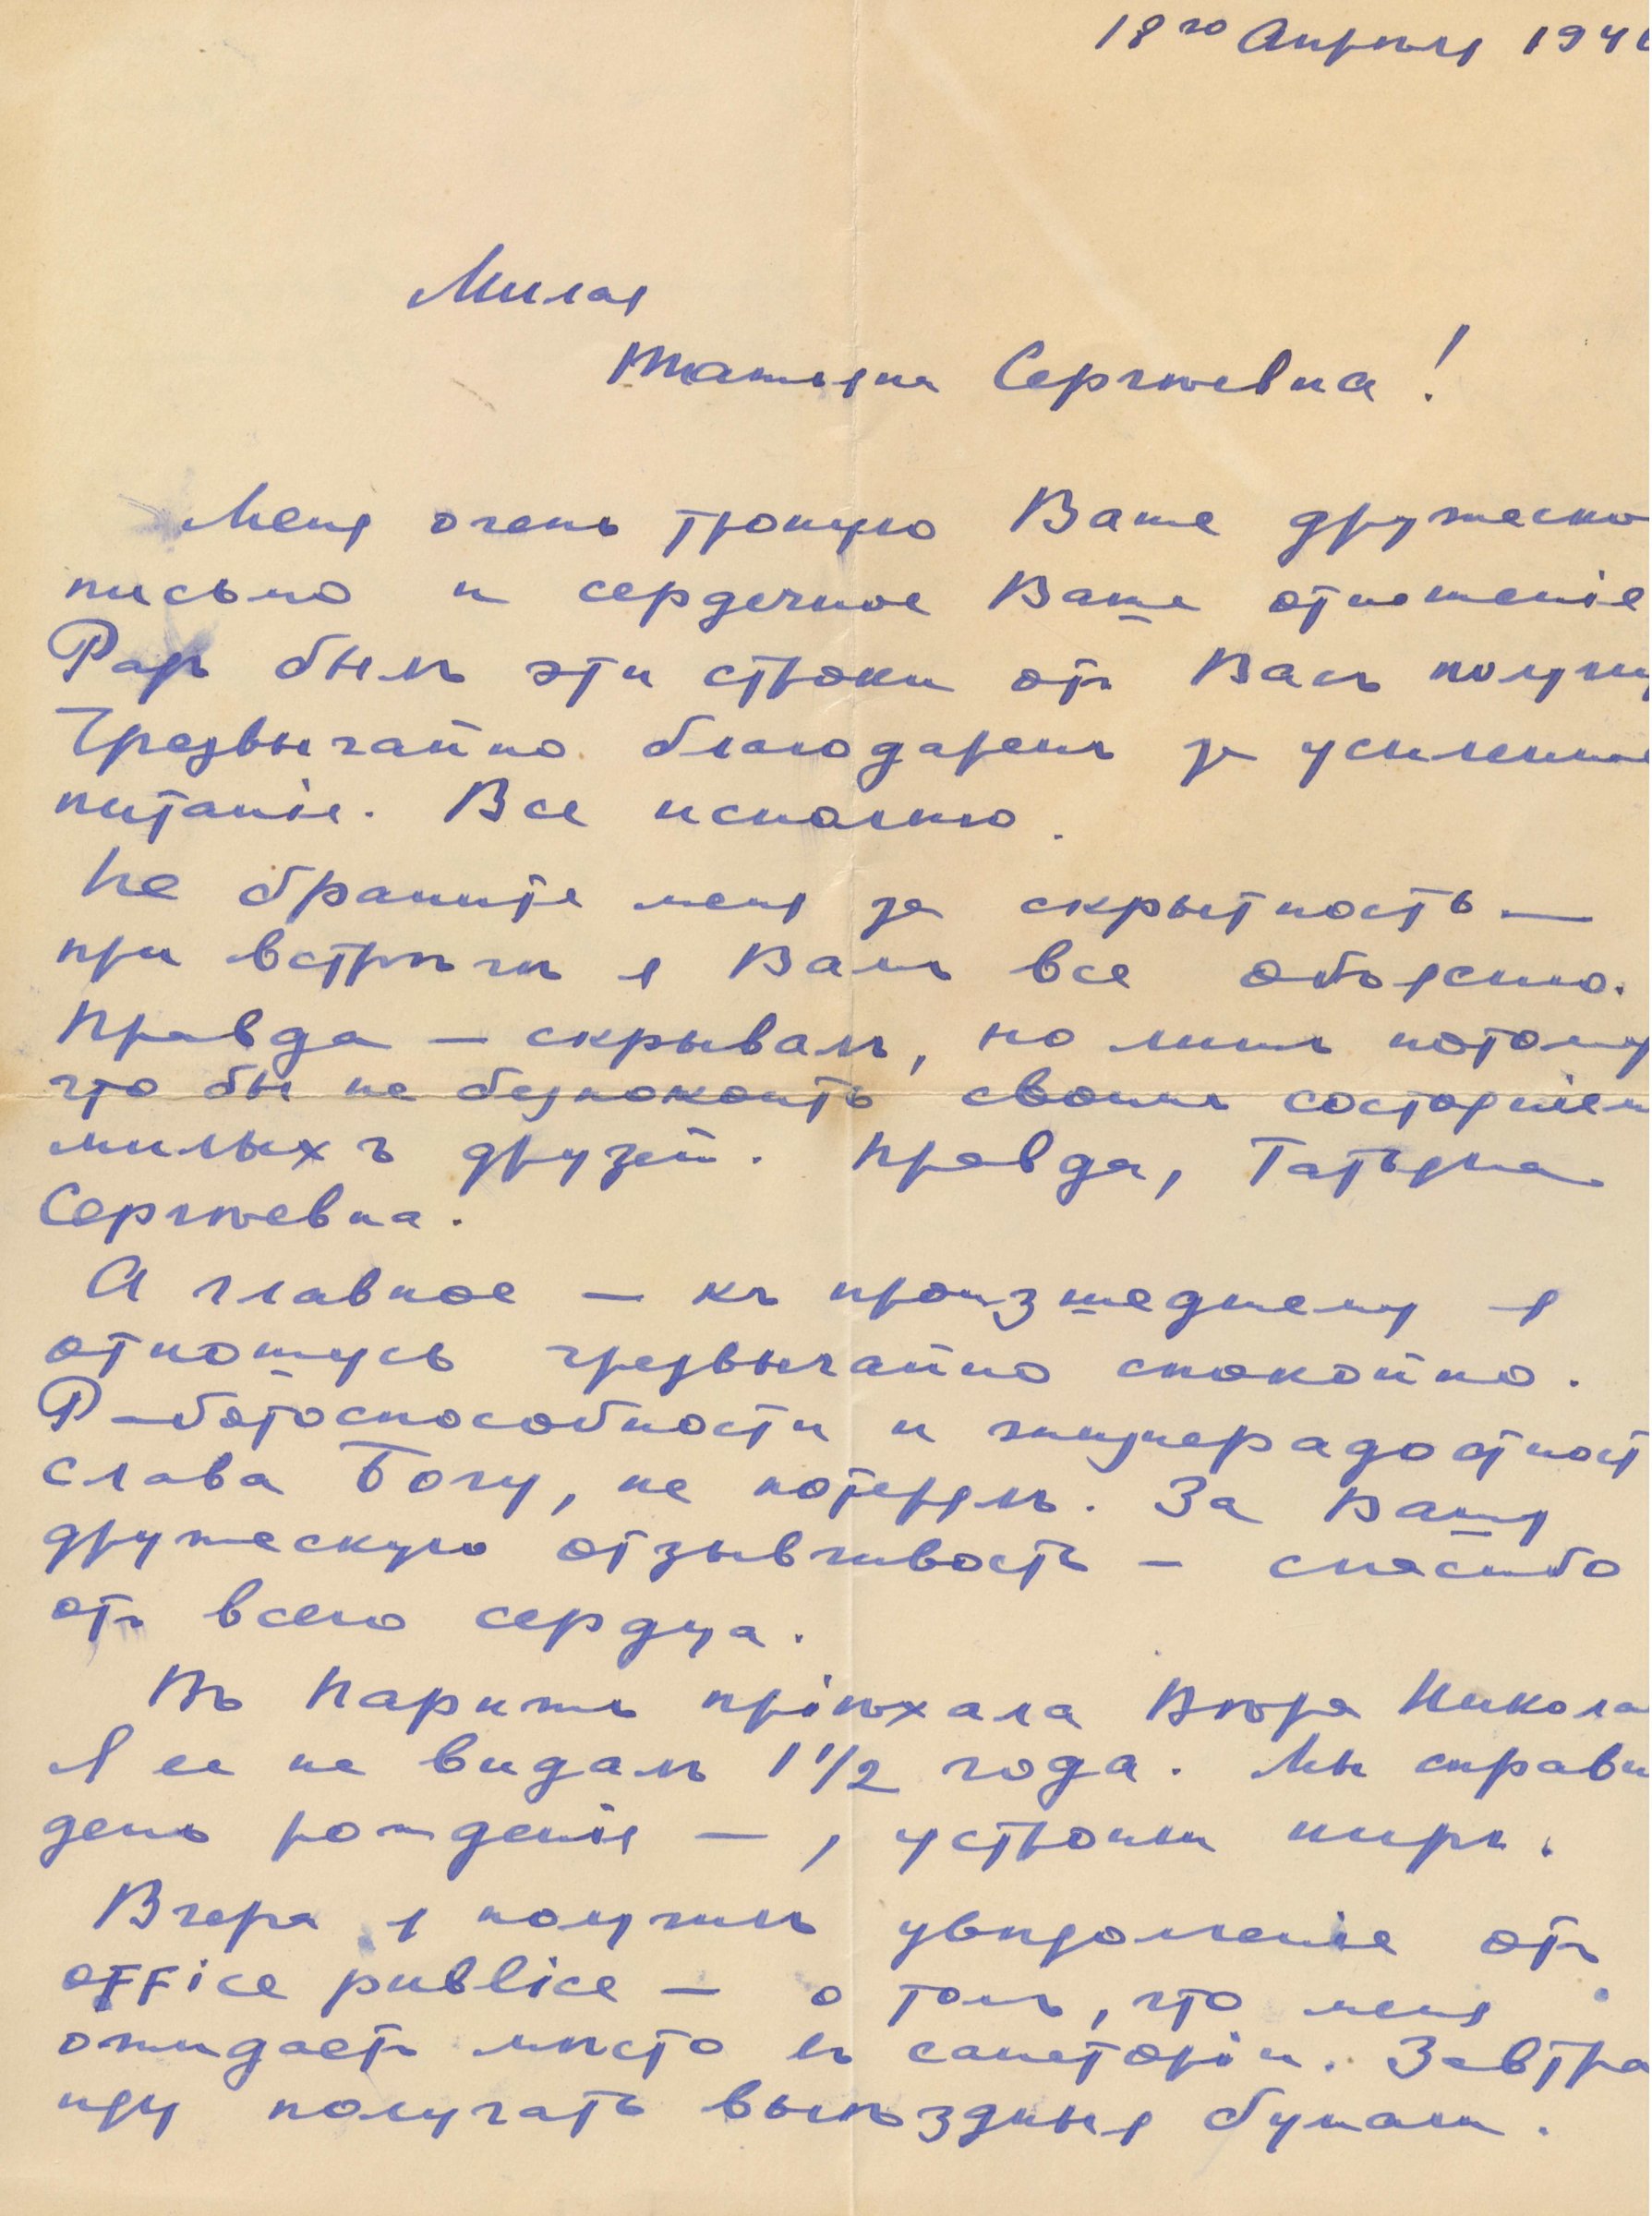 18го Апрѣля 194
Милая
Татьяна Сергѣевна!
Меня очень тронуло Ваше дружеско
письмо и сердечное Ваше отношеніе
Рад был эти строки отъ Васъ получи
Чрезвычайно благодаренъ за усиленное
питаніе. Все исполню.
Не браните меня за скрытность —
при встрѣчѣ я Вамъ все объясню.
Правда — скрывалъ, но лишь потому
что бы не безпокоить своимъ состояніем
милыхъ друзей. Правда, Татьяна
Сергѣевна.
А главное — къ происшедшему я
отношусь чрезвычайно спокойно.
Работоспособности и жизнерадостност
слава Богу, не потерялъ. За Вашу
дружескую отзывчивость — спасибо
отъ всего сердца.
Въ Парижъ пріѣхала Вѣра Никола
Я ее не видалъ 1 1/2 года. Мы справи
день рожденія —, устроили пиръ.
Вчера я получилъ увѣдомленіе отъ
office publice — о томъ, что меня
ожидаетъ мѣсто въ санаторіи. Завтра
иду получать выѣздныя бумаги.